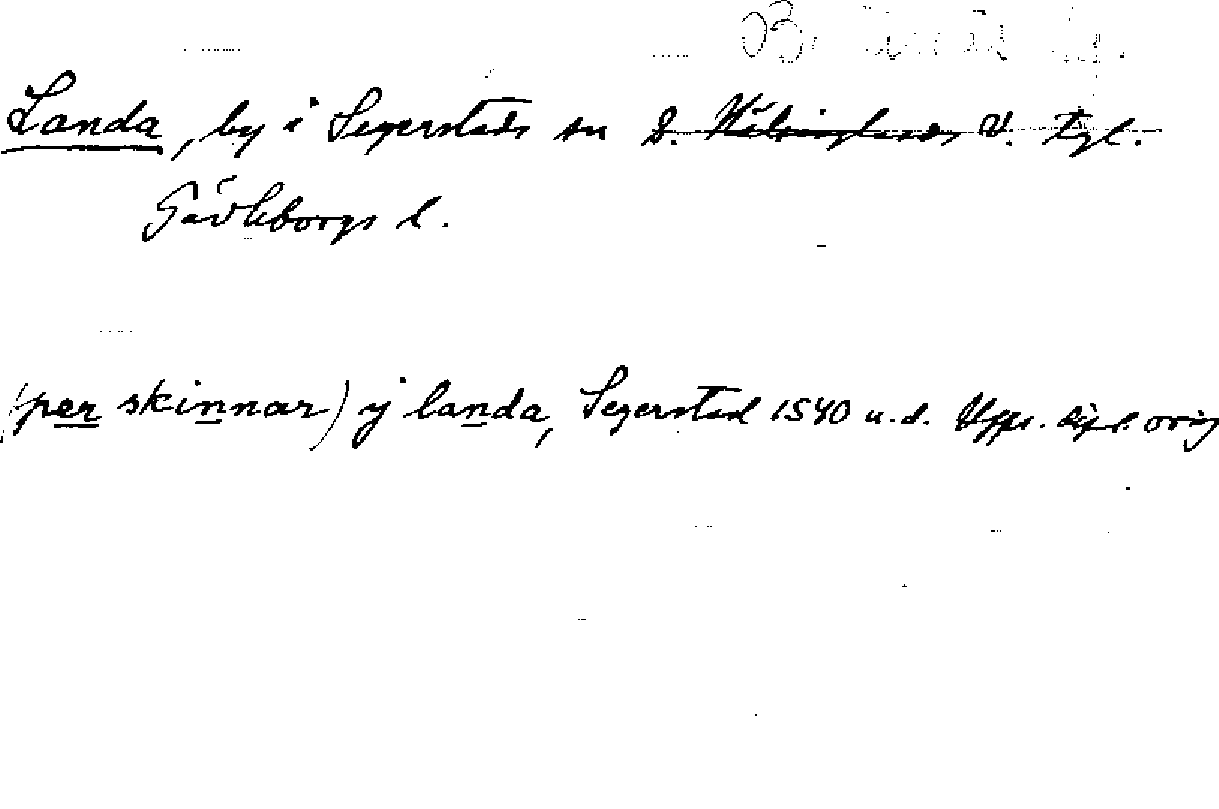 Landa, by i Segerstads sn S. Hälsinglands V. tgl.
Gävleborgs l.
(per skinnar) y landa, Segerstad 1540 u.d. Upps. dipl. orig